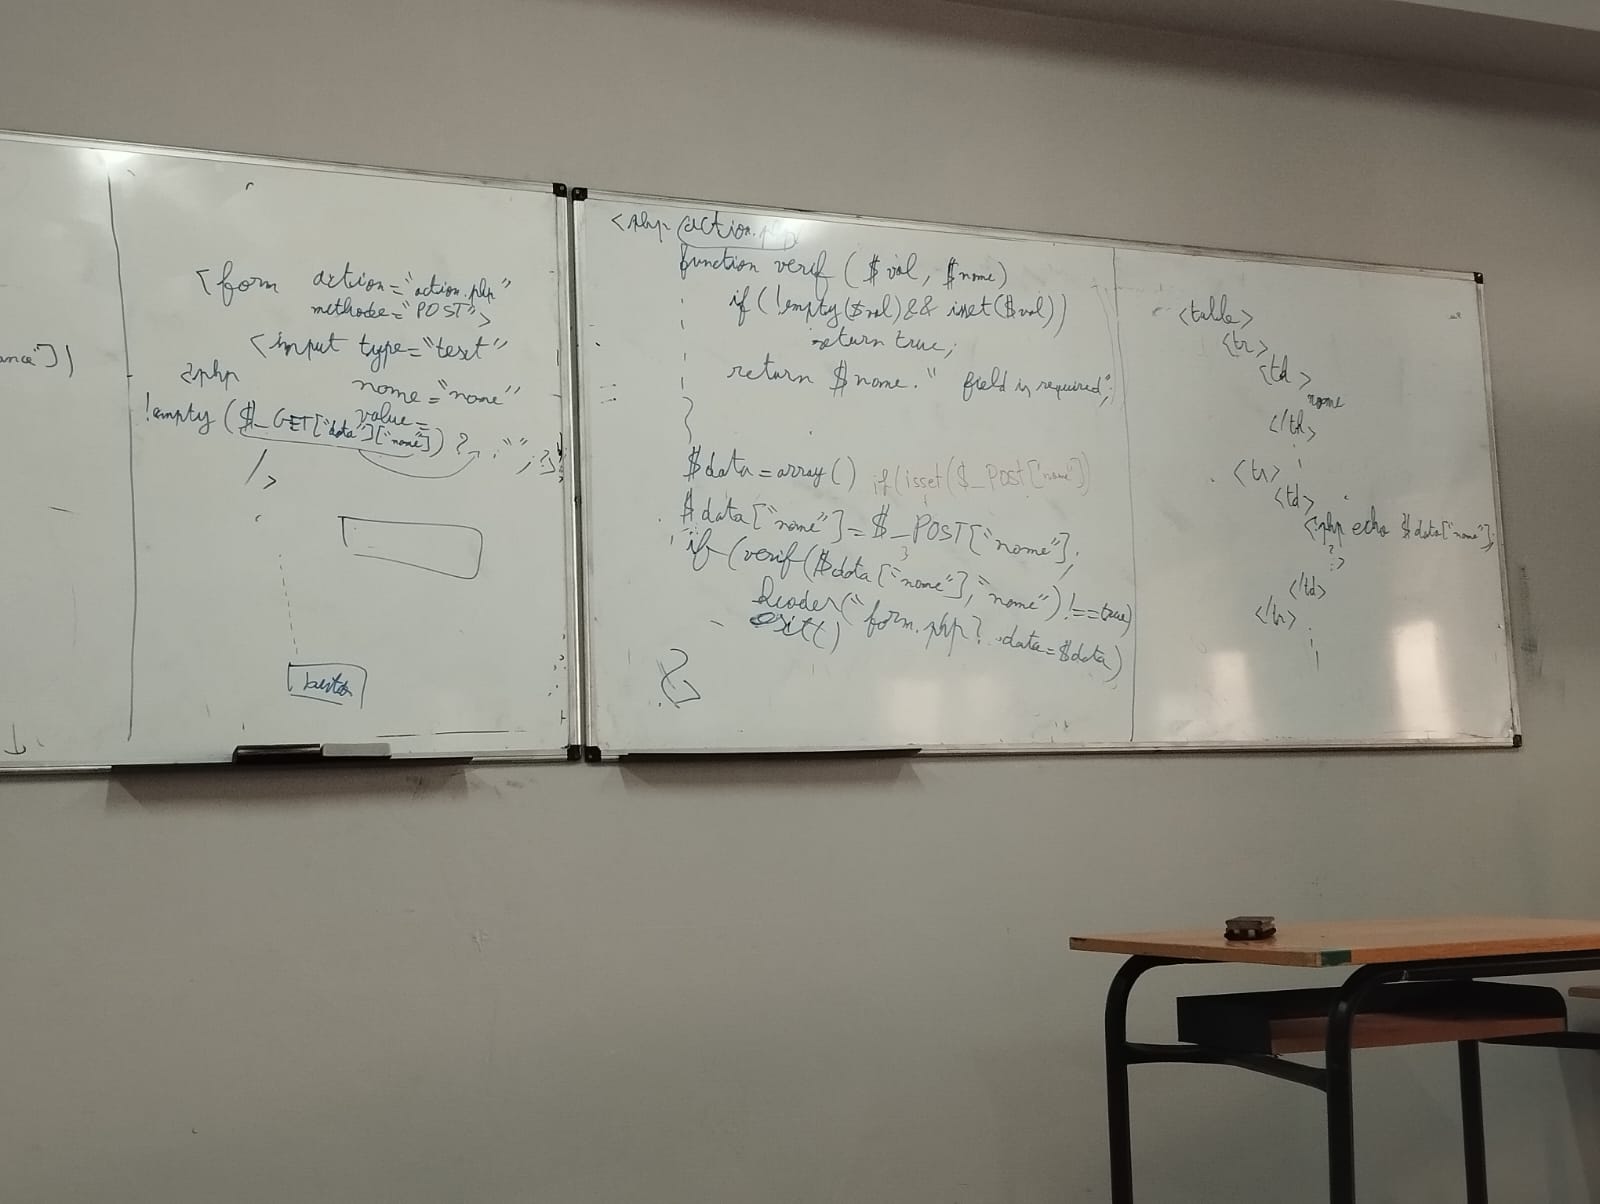 ance"])
<form action="action.php"
methode="POST">
<input type="text"
name="name"
?php
value=
!empty($_GET["data"]["name"]) ? : ""; ?>
/>
button
<php action.php
function verif ($val, $name)
if (!empty($val) && isset($val))
return true;
return $name." field is required";
}
$data=array() if(isset($_POST["name"])
$data["name"]=$_POST["name"];
if (verif($data["name"],"name") !==true)
header("form.php? data=$data)
exit()
<table>
<tr>
<td>
name
</th>
<tr>
<td>
<?php echo $data["name"];
?>
</td>
</tr>